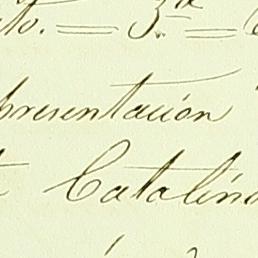 to. = 3.ra =
presentacion
t Catalina